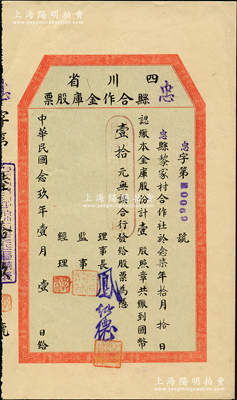 四川省
忠縣合作金庫股票
忠字第 號
忠縣黎家村合作社於念柒年拾月拾日
認繳本金庫股份計壹股照章共繳到國幣
壹拾元無誤合行發給股票為憑
理事長
監事
經理
中華民國念玖年壹月壹日給